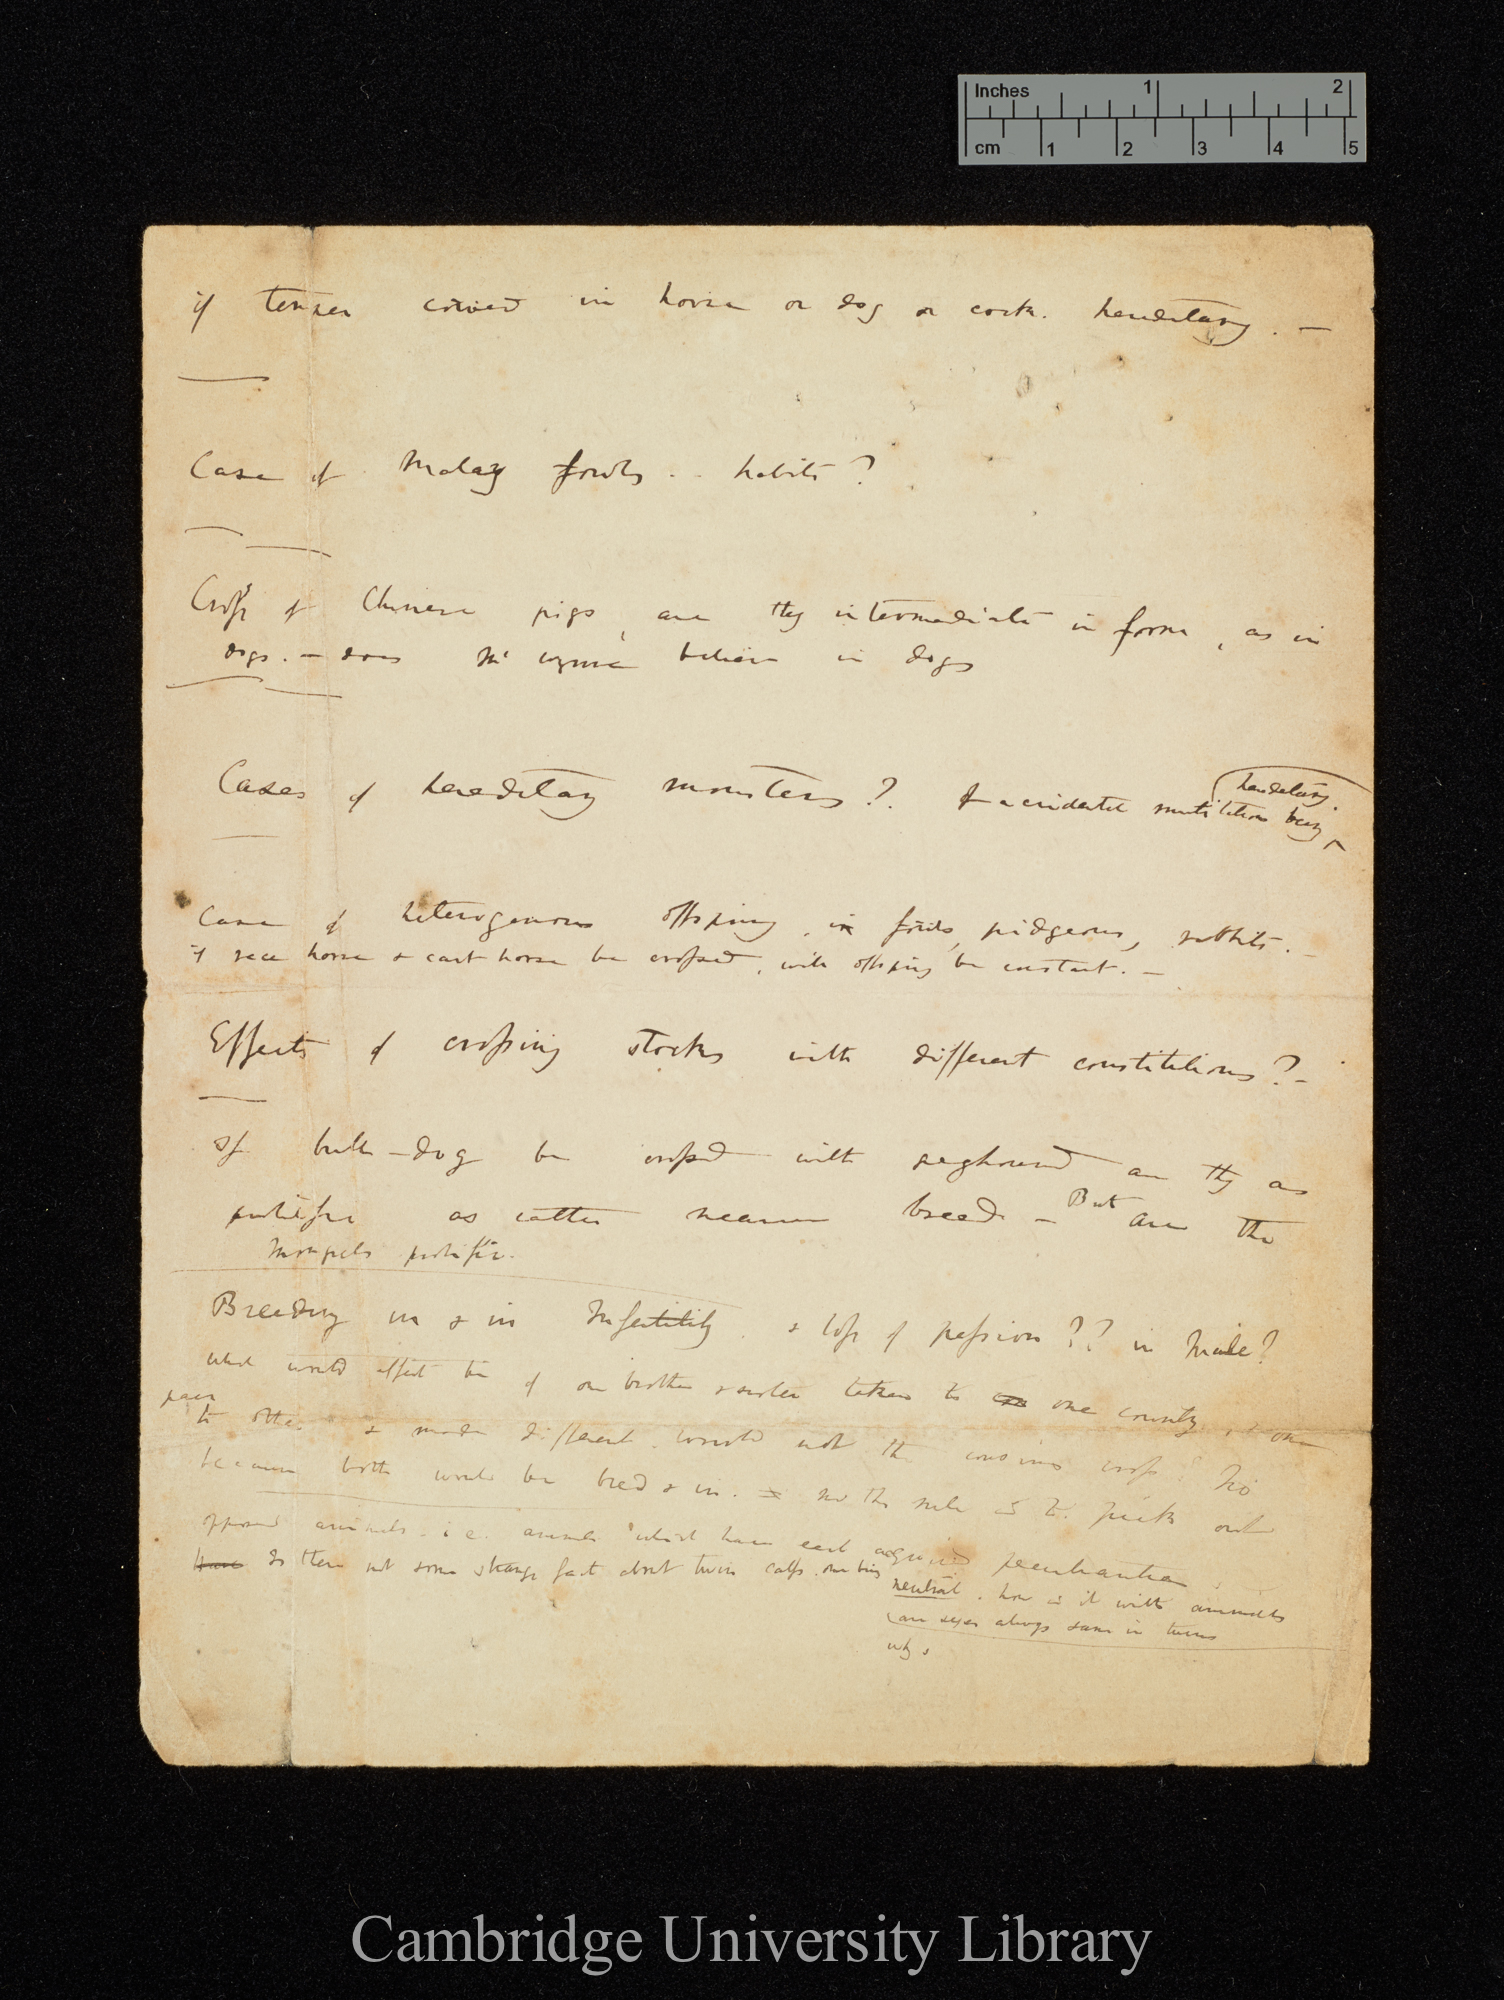 Inches 1 2
cm 1 2 3 4 5
if temper cowed in horse or dog or cock. hereditary. —
Case of Malay fowls .. habits?
Crosses of Chinese pigs, are they intermediate in form, as in
dogs. — does Mr Wynne believe in dogs
Cases of hereditary monsters?. & accidental mutilations being
hereditary.
Case of heterogenous offspring, in fowls, pidgeons, rabbits. —
if race horse & cart horse be crossed, will offspring be constant. —
Effects of crossing stocks with different constitutions? —
If bull-dog be crossed with greyhound are they as
prolific as nearer breeds — But are the
Mongrels prolific.
Breeding in & in Infertility. & loss of passion?? in Male?
what would effect be of one brother & sister taken to one county, & one
pair
to other & made different. would not the cousins cross? No
because both would be bred & in. no the rule is to pick out
opposed animals. i.e. animals which have each acquired peculiarities
Is there not some strange fact about twin calfs. one being
neutral. how is it with animals
are sexes always same in twins
why.
Cambridge University Library